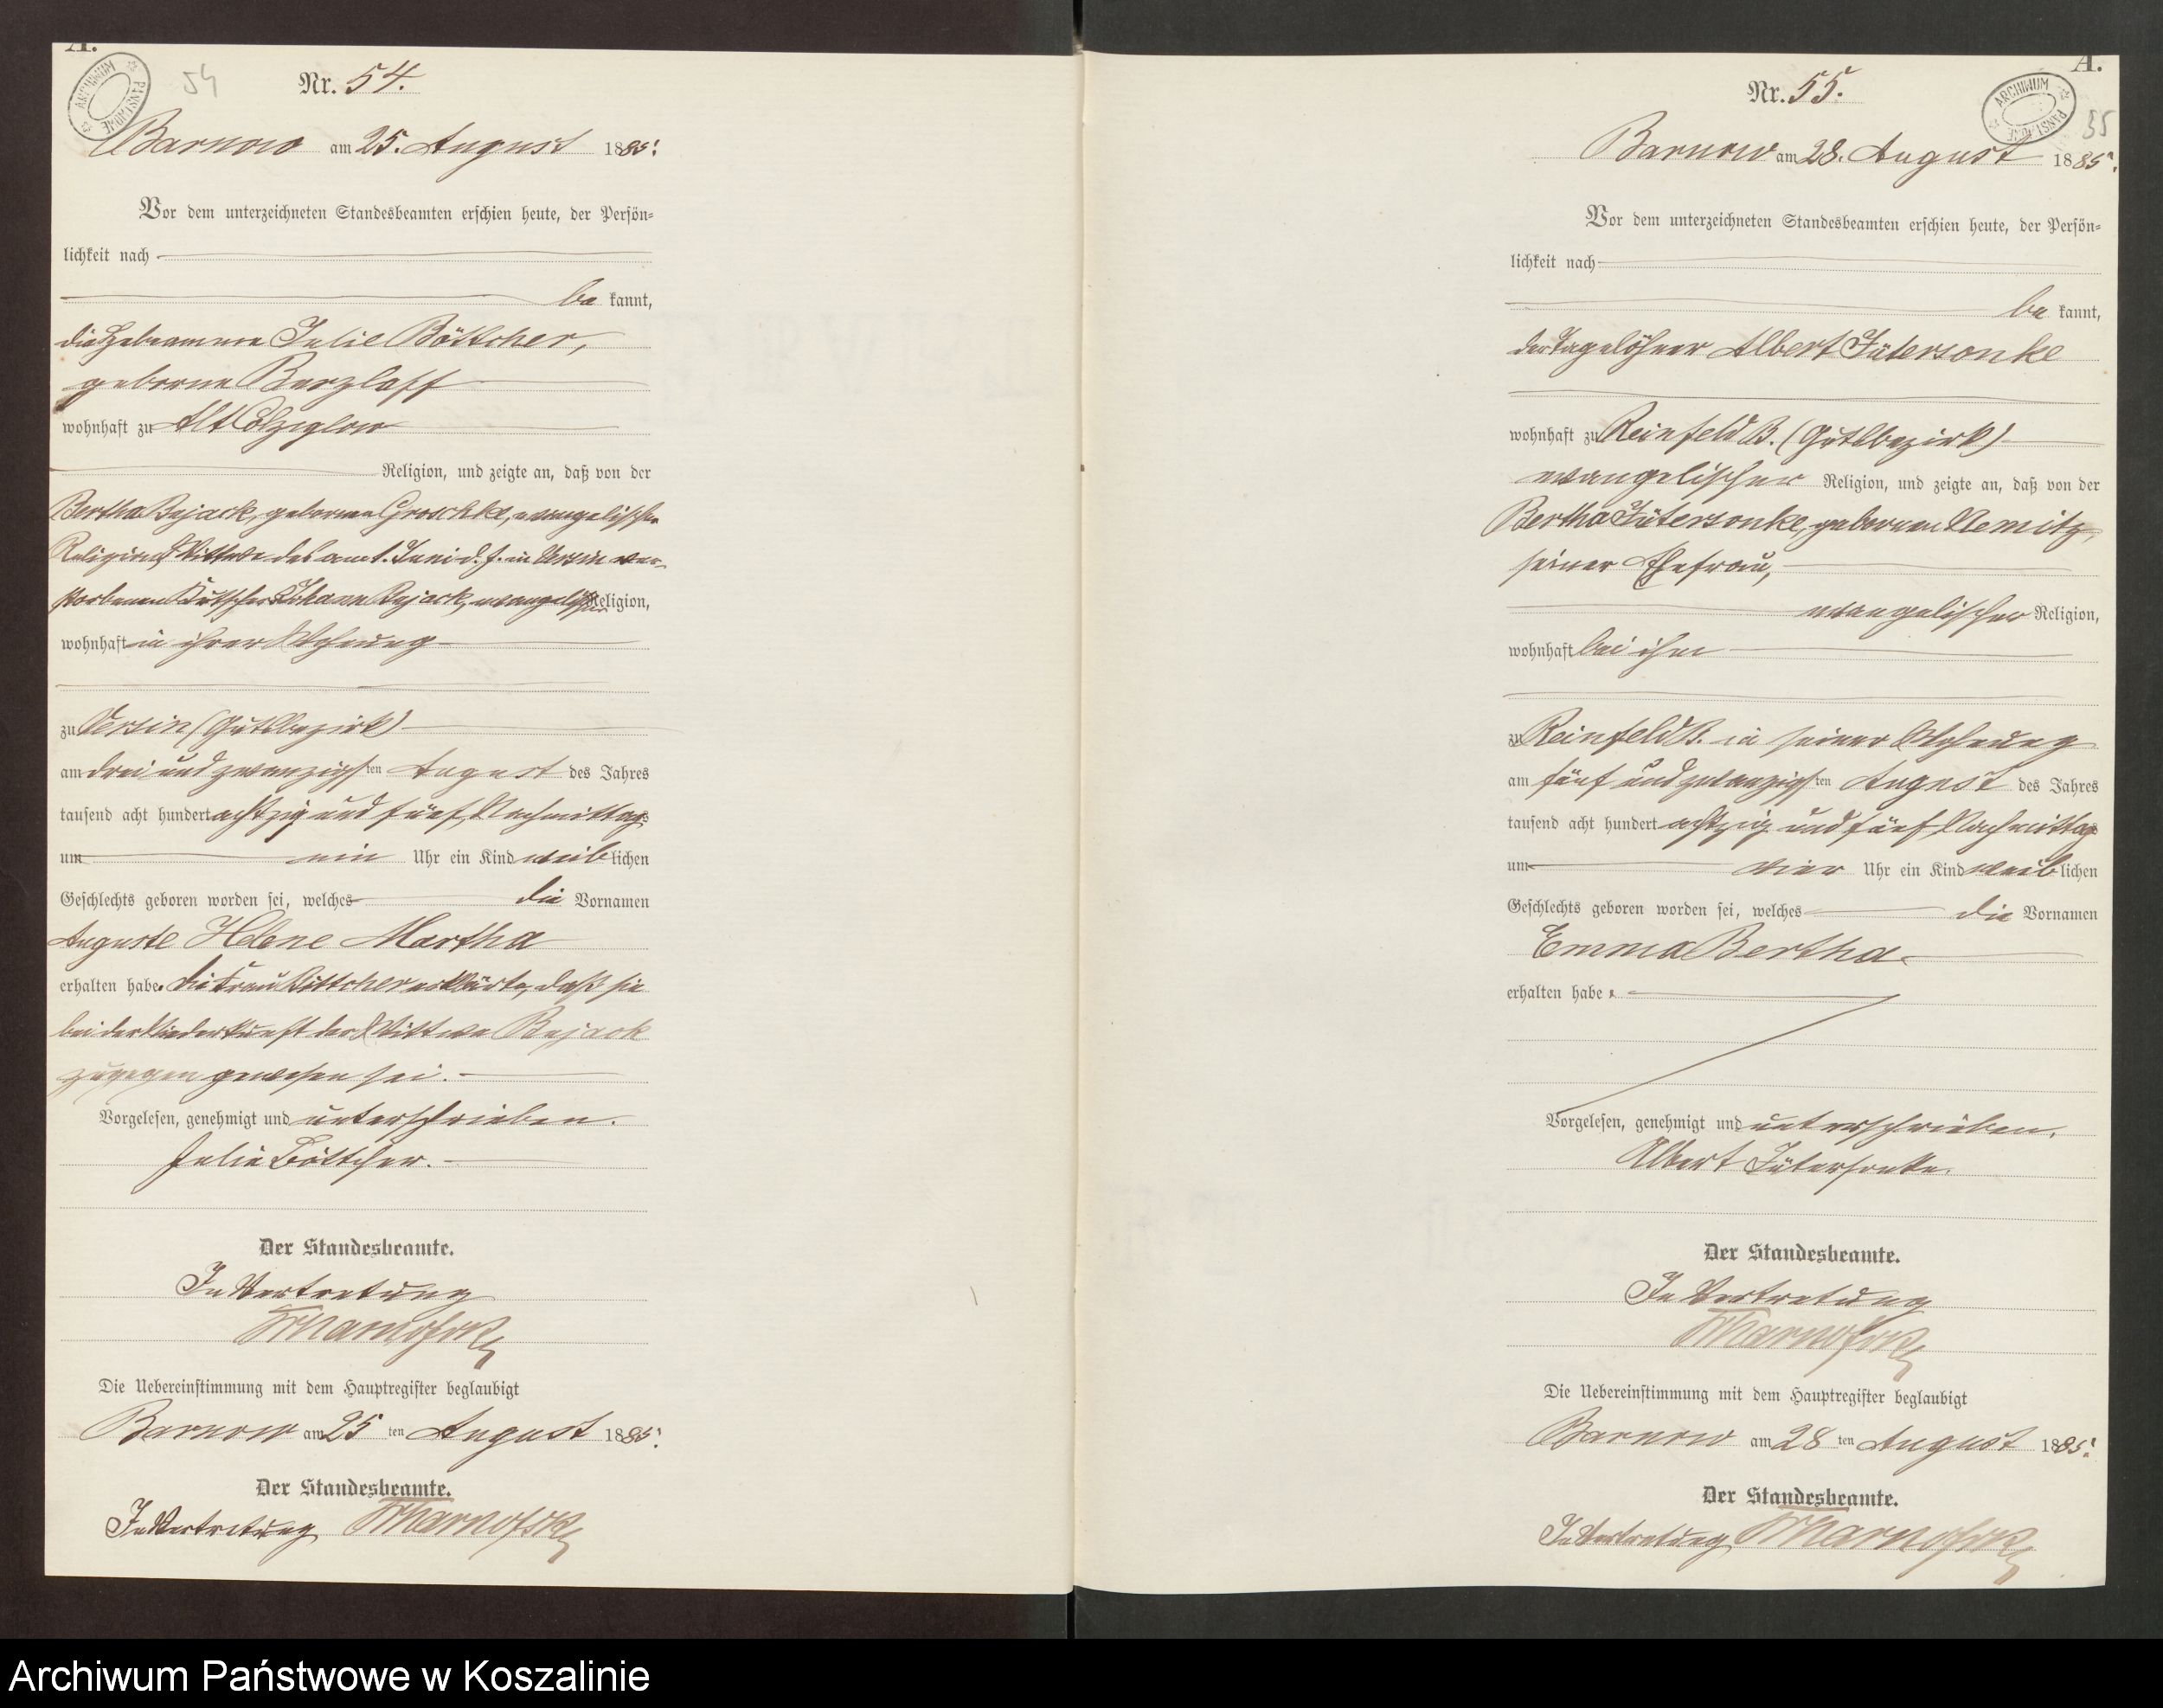 A.
ARCHIWUM PAŃSTWOWE
54
Nr. 54.
Barnow am 25. August 1885.
Vor dem unterzeichneten Standesbeamten erschien heute, der Persön=
lichkeit nach
be kannt,
die Hebeamme Julie Böttcher,
geborne Barzlaff
wohnhaft zu Alt Colziglow
Religion, und zeigte an, daß von der
Bertha Bejack, geborene Groschke, evangelischer
Religion, Wittwe des am 1. Juni d. J. in Versin ver-
storbenen Kutscher Johann Bejack, evangelischer Religion,
wohnhaft in ihrer Wohnung
zu Versin (Gutsbezirk)
am drei und zwanzigsten August des Jahres
tausend acht hundert achtzig und fünf, Nachmittags
um ein Uhr ein Kind weiblichen
Geschlechts geboren worden sei, welches die Vornamen
Auguste Helene Martha
erhalten habe. Die Frau Böttcher erklärte, daß sie
bei der Niederkunft der Wittwe Bejack
zugegen gewesen sei.
Vorgelesen, genehmigt und unterschrieben.
Julie Böttcher.
Der Standesbeamte.
In Vertretung
Die Uebereinstimmung mit dem Hauptregister beglaubigt
Barnow am 25 ten August 1885.
Der Standesbeamte.
In Vertretung
A.
ARCHIWUM PAŃSTWOWE
55
Nr. 55.
Barnow am 28. August 1885.
Vor dem unterzeichneten Standesbeamten erschien heute, der Persön=
lichkeit nach
be kannt,
der Tagelöhner Albert Jütersonke
wohnhaft zu Reinfeld B. (Gutsbezirk)
evangelischer Religion, und zeigte an, daß von der
Bertha Jütersonke, geborenen Nemitz,
seiner Ehefrau,
evangelischer Religion,
wohnhaft bei ihm
zu Reinfeld B. in seiner Wohnung
am fünf und zwanzigsten August des Jahres
tausend acht hundert achtzig und fünf Nachmittags
um vier Uhr ein Kind weiblichen
Geschlechts geboren worden sei, welches die Vornamen
Emma Bertha
erhalten habe.
Vorgelesen, genehmigt und unterschrieben.
Albert Jütersonke.
Der Standesbeamte.
In Vertretung
Die Uebereinstimmung mit dem Hauptregister beglaubigt
Barnow am 28 ten August 1885.
Der Standesbeamte.
In Vertretung
Archiwum Państwowe w Koszalinie